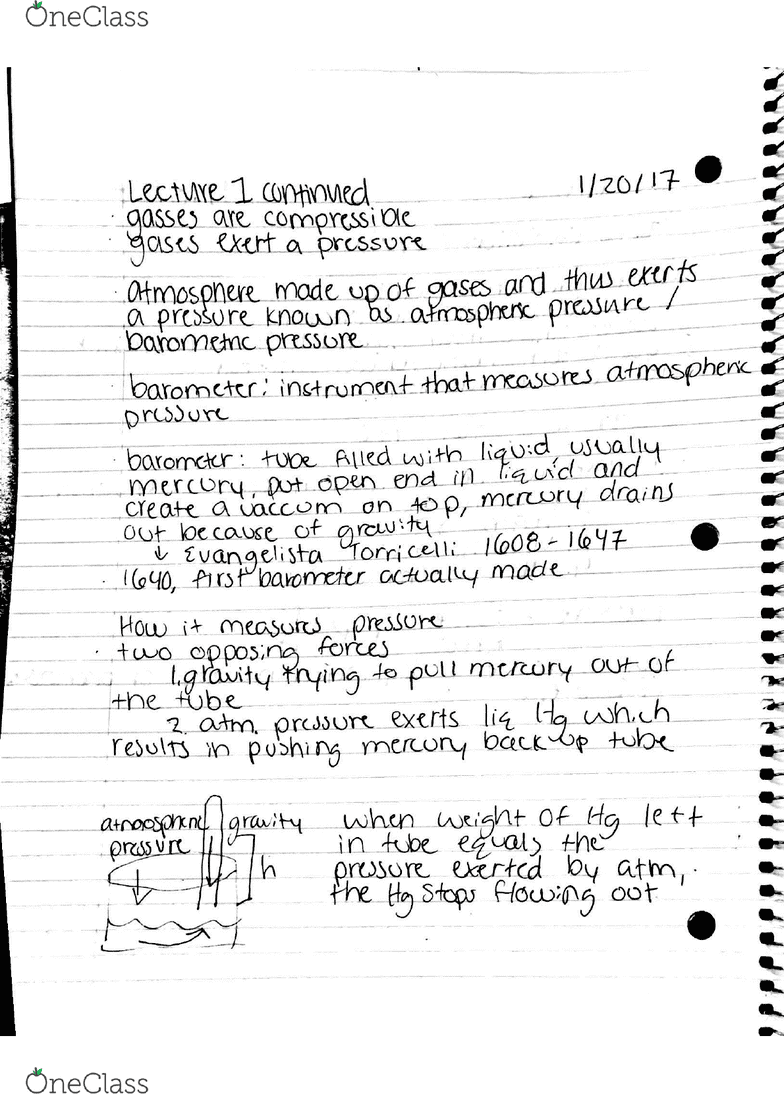 OneClass
Lecture 1 continued
1/20/17
· gasses are compressible
· gases exert a pressure
· atmosphere made up of gases and thus exerts
a pressure known as atmospheric pressure /
barometric pressure
· barometer: instrument that measures atmospheric
pressure
· barometer: tube filled with liquid, usually
mercury, put open end in liquid and
create a vaccum on top, mercury drains
out because of gravity
↓ Evangelista Torricelli 1608-1647
· 1640, first barometer actually made
How it measures pressure
· two opposing forces
1. gravity trying to pull mercury out of
the tube
2. atm. pressure exerts liq Hg which
results in pushing mercury back up tube
atmospheric
pressure
gravity
h
when weight of Hg left
in tube equals the
pressure exerted by atm,
the Hg stops flowing out
OneClass